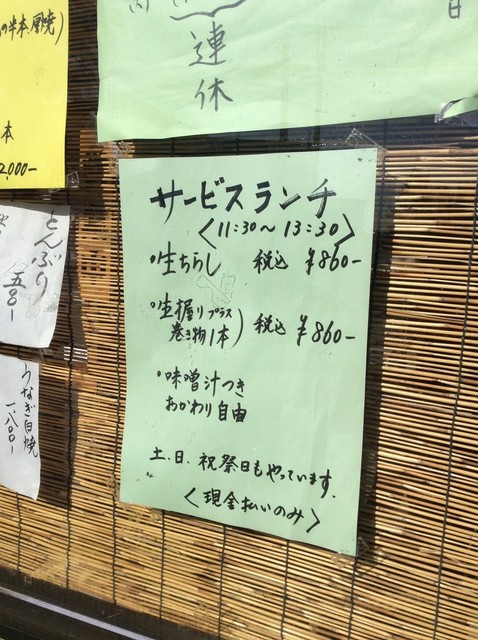 の半本.唇焼)
本
2,000-
連
休
日
サービスランチ
<11:30～13:30>
・生ちらし 税込 ¥860-
・生握りプラス
巻き物1本) 税込 ¥860-
・味噌汁つき
おかわり自由
土.日.祝祭日もやっています.
<現金払いのみ>
どんぶり
五8-
うなぎ白焼
一、八00-